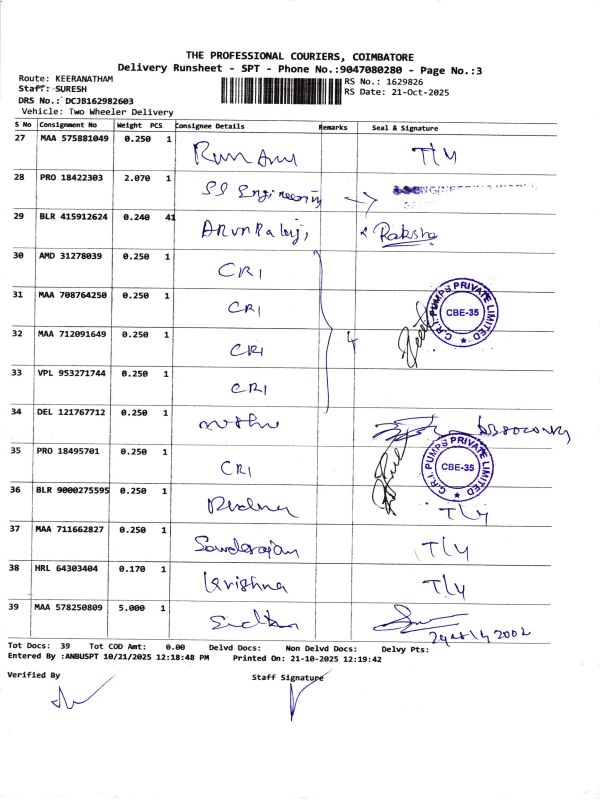 THE PROFESSIONAL COURIERS, COIMBATORE
Delivery Runsheet - SPT - Phone No.:9047080280 - Page No.:3
Route: KEERANATHAM RS No.: 1629826
Staff: SURESH RS Date: 21-Oct-2025
DRS No.: DCJB162982603
Vehicle: Two Wheeler Delivery
S No Consignment No Weight PCS Consignee Details Remarks Seal & Signature
27 MAA 575881049 0.250 1 T/y
28 PRO 18422303 2.070 1 SS Engineering
29 BLR 415912624 0.240 41 Raksha
30 AMD 31278039 0.250 1 CRI
31 MAA 708764250 0.250 1 CRI
C.R.I. PUMPS PRIVATE LIMITED
CBE-35
32 MAA 712091649 0.250 1 CRI 4
33 VPL 953271744 0.250 1 CRI
34 DEL 121767712 0.250 1
35 PRO 18495701 0.250 1 CRI
C.R.I. PUMPS PRIVATE LIMITED
CBE-35
36 BLR 9000275595 0.250 1 T/y
37 MAA 711662827 0.250 1 Sounderajan T/y
38 HRL 64303404 0.170 1 Krishna T/y
39 MAA 578250809 5.000 1
Tot Docs: 39 Tot COD Amt: 0.00 Delvd Docs: Non Delvd Docs: Delvy Pts:
Entered By :ANBUSPT 10/21/2025 12:18:48 PM Printed On: 21-10-2025 12:19:42
Verified By Staff Signature